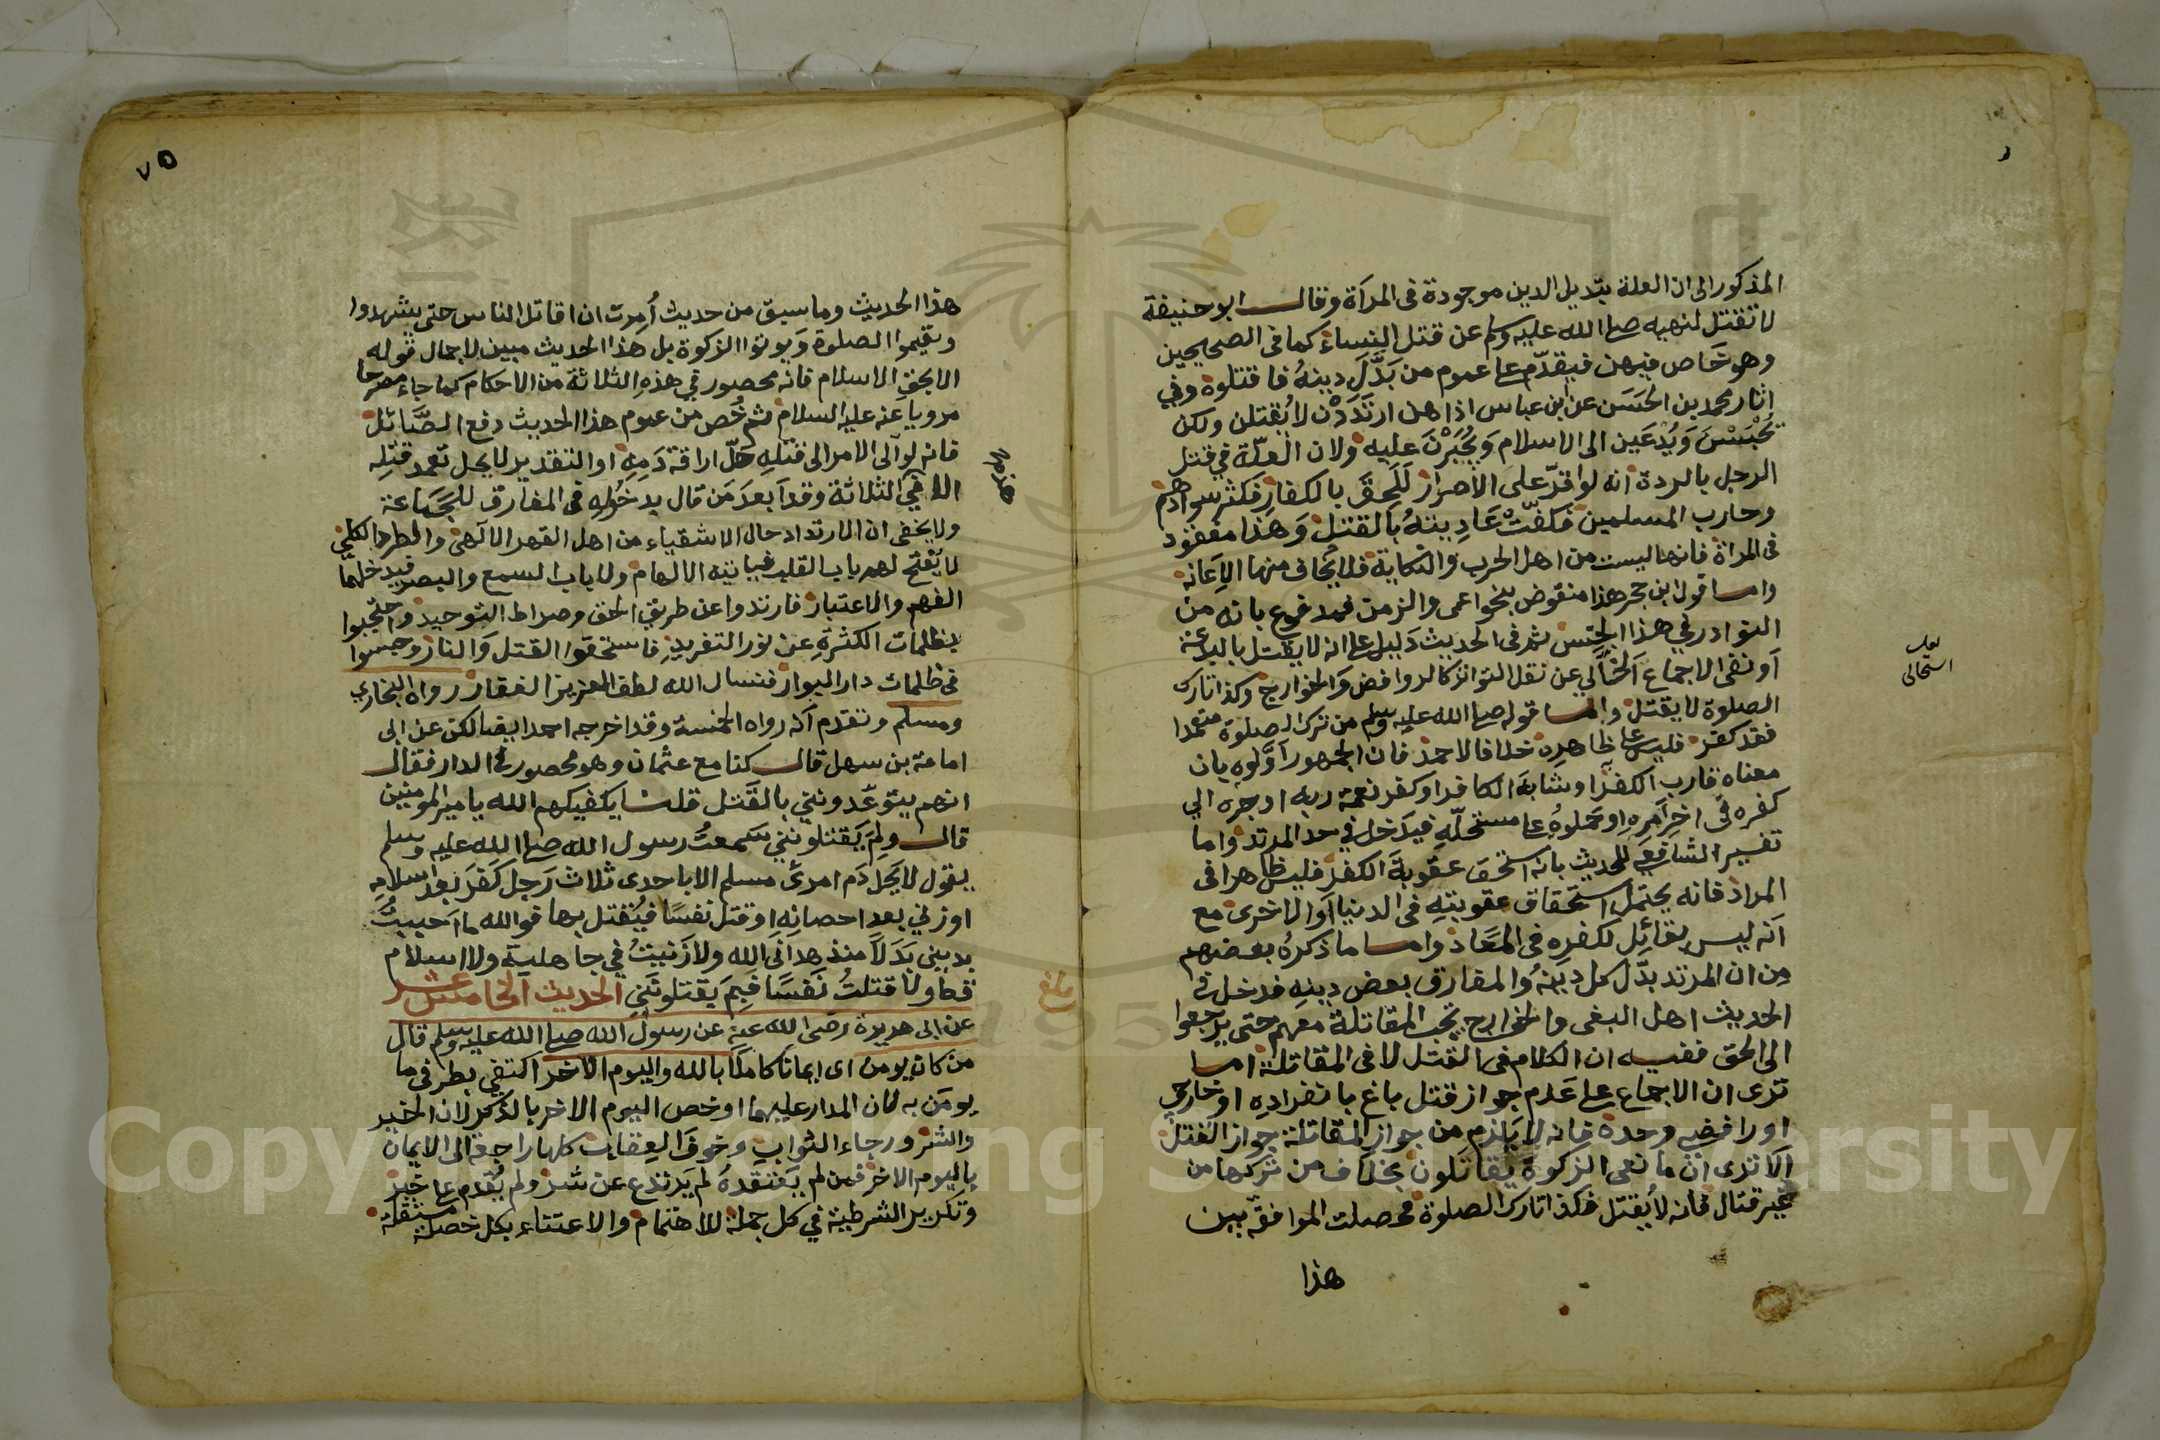 المذكور الى ان العلة تبديل الدين موجودة فى المرأة وقال ابو حنيفة
لا تقتل لنهيه صلى الله عليه وسلم عن قتل النساء كما فى الصحيحين
وهو خاص فيهن فيقدّم على عموم من بَدَّلَ دينهُ فاقتلوه وفي
اثار محمد بن الحسَن عن ابن عباس اذا هن ارتَدَدْن لا يُقتلن ولكن
يُحْبَسْنَ وَيُدْعَين الى الاسلام وَيُجبَرْنَ عليه ولان العلّة في قتل
الرجل بالردة انه لو اقرّ على الاصرار لَلَحِقَ بالكفار فكثر سوادهم
وحارب المسلمين فكفّتْ عَادِيتهُ بالقتل وَهذا مفقود
فى المراة فانها ليست من اهل الحرب والنكاية فلا يُخاف منها الاعانة
واما قول ابن حجر هذا منقوض بنحو اعمى والزمن فمدفوع بانه من
النوادر في هذا الجنس ثم فى الحديث دَليل على انه لا يقتل بالبدعة
اَو نفى الاجماع الخالي عن نقل التواتر كالروافض وَالخوارج وكذا تارك
الصلوة لا يقتل واما قوله صلى الله عليه وسلم من ترك الصلوة متعمدا
فقد كفر فليس على ظاهره خلافا لاحمد فان الجمهور اَوَّلوه بان
معناه قارب الكفر او شابهَ الكافر او كفر نعمة ربه او جره الي
كفره فى اخر اَمره او تَحملوهُ على مستحلّهِ فيدَخل في حد المرتد واما
تفسير الشافعي للحديث بانه استحق عقوبةَ الكفر فليس ظاهرا فى
المراد فانه يحتمل استحقاق عقوبتهِ فى الدنيا اَو الاخرى مع
اَنه ليس بقائِل لكفره فى المعَاد واما ما ذكرهُ بعضهم
مِن ان المرتد بدّل كل دينهُ والمفارق بعض دينهِ فدخل في
الحديث اهل البغى والخوارج يجب المقاتلة معهم حتى يرجعوا
الى الحق ففيه ان الكلام فى القتل لا فى المقاتلة اما
ترى ان الاجماع على عَدم جواز قتل باغ بانفرادِهِ او خارجي
او رافضي وحده فانه لا يَلزم من جواز المقاتلة جواز القتل
الا ترى ان مانعى الزكوة يُقاتَلون بخلاف من تركها من
غير قتال فانه لا يُقتل فكذا تارك الصلوة فحصلت الموافقة بين
هذا
لعله
استحالى
٧٥
هذا الحديث وما سبق من حديث أُمِرت ان اقاتل الناس حتى يشهدوا
ويقيموا الصلوة وَيوتوا الزكوة بل هذا الحديث مبين لاجمال قوله
الا بحق الاسلام فانه محصور في هذهِ الثلاثة من الاحكام كما جاء مصرحا
مرويا عنه عليه السلام ثم خُص من عموم هذا الحديث دفع الصَّائل
فانه لو آلَى الامر الى قتلهِ حَلّ اراقة دَمِهِ او التقدير لا يحل تعمد قتلِه
الا في الثلاثة وقد اَبعدَ مَن قال بدخُولهِ فى المفارق للجَماعَة
ولا يخفى ان الارتداد حال الاشقياء من اهل القهر الالهى والطرد الكلى
لا يُفتح لهم باب القلب فياتيه الالهام ولا باب السمع والبصر فيدخلها
الفهم والاعتبار فارتدوا عن طريق الحق وصراط التوحيد واحتجبوا
بظلمات الكثرَةِ عن نور التفريد فاستحقوا القتل وَالنار وحبسوا
فى ظلمات دار البوار فنسال الله لطف العزيز الغفار رواه البخارى
ومسلم وتقدم اَنه رواه الخمسة وقد اخرجه احمد ايضا لكن عن ابى
امامة بن سهل قال كنا مع عثمان وهو محصور فى الدار فقال
انهم يتوعّدونني بالقَتل قلت يكفيكهم الله يا مير المومنين
قال ولمَ يَقتلونني سَمعتُ رسول الله صلى الله عليه وسلم
يقول لا يَحل دَم امرئ مسلم الا باحدى ثلاث رَجل كَفَرَ بَعد اسلامِهِ
اوزني بعد احصانهِ او قتل نفسًا فيُقتل بها فو الله ما اَحببتُ
بديني بَدَلاً منذ هداني الله ولا زَنيتُ في جاهلية ولا اسلام
قط ولا قتلتُ نَفسًا فَبِمَ يَقتلونَني الحديث الخامس عشر
عن ابى هريرة رضى الله عنه عن رسول الله صلى الله عليه وسلم قال
من كان يومن اى ايمانا كاملا بالله واليوم الاخر اكتفى بطرفى ما
يومَن به لان المدار عليهما او خص اليوم الاخر بالذكر لان الخير
والشر ورجاء الثواب وخوف العقاب كلها راجعة الى الايمان
باليوم الاخر فمن لم يَعتقدهُ لم يَرتدع عن شر ولم يُقدم على خير
وتكرير الشرطية في كل جملة للاهتمام والاعتناء بكل خصلة مستقلة
بلغ
Copyright © King Saud University
1957